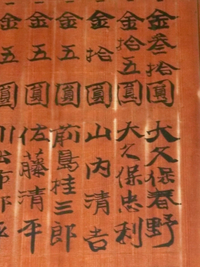 一金参拾圓 大久保春野
一金拾五圓 大久保忠利
一金拾圓 山内清吉
一金五圓 前島桂三郎
一金五圓 佐藤清平
一金五圓